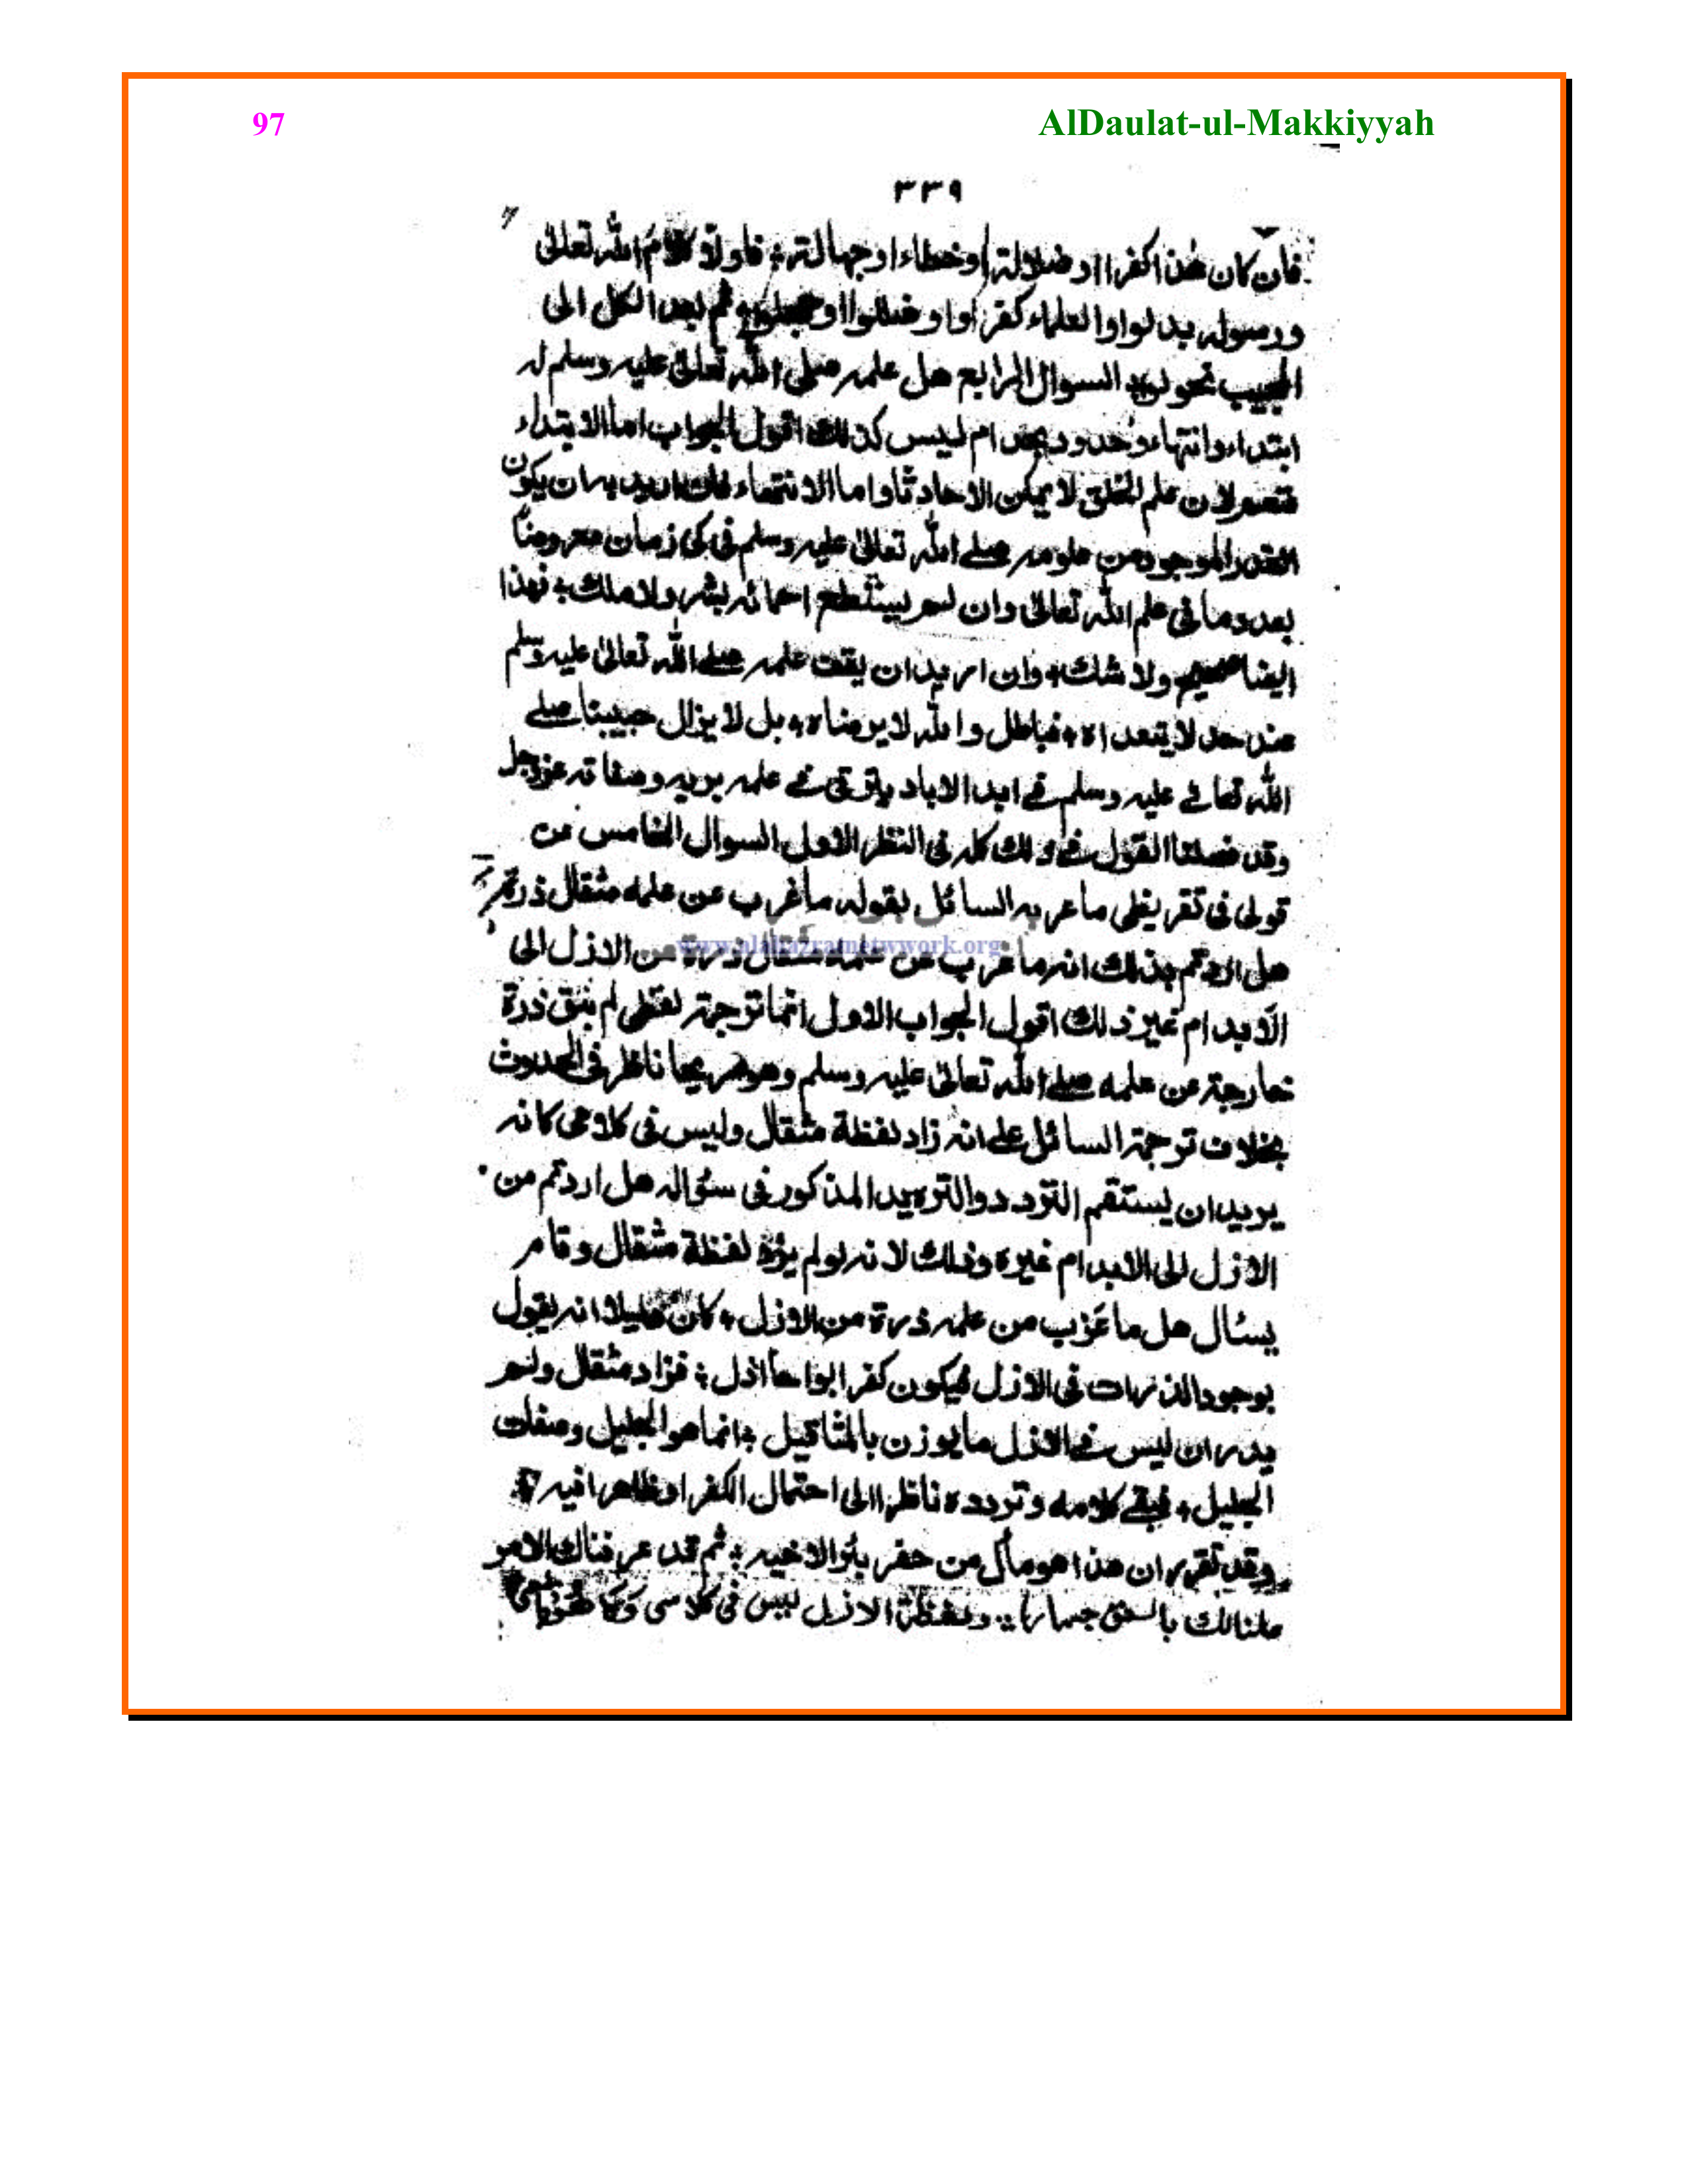 97 AlDaulat-ul-Makkiyyah
٣٣٩
فان كان هذا كفرا او ضلالة او خطاء او جهالة ؛ فاولا كلام الله تعالى
ورسوله بدلوا والعلماء كفروا او ضللوا او ثم بعد الكل الى
المجيب تحولوا السوال الرابع هل علمه صلى الله تعالى عليه وسلم له
ابتداء وانتهاء وحدود بحد ام ليس كذلك اقول الجواب اما الابتداء
فنعم لان علم الخلق لا يمكن الا حادثا واما الانتهاء فان اريد به ان يكون
القدر الموجود من علومه صلے الله تعالى عليه وسلم فى كل زمان معروضا
بعد وما فى علم الله تعالى وان لم يستطع احصائه بشر ولا ملك ؛ فهذا
ايضا صحيح ولا شك ؛ وان اريد ان يقف علمه صلے الله تعالى عليه وسلم
عند حد لا يتعداه ؛ فباطل والله لا يرضاه ؛ بل لا يزال حبيبنا صلے
الله تعالے عليه وسلم فے ابد الاباد يترقى فے علمه بربه وصفاته عزوجل
وقد فصلنا القول فے ذلك كله فى النظر الاول السوال الخامس عن
قولى فى تقريظى ما عربه السائل بقوله ما عزب عن علمه مثقال ذرة
هل اردتم بذلك انه ما عزب عن علمه مثقال ذرة من الازل الى
www.alahazratnetwork.org
الابد ام غير ذلك اقول الجواب الاول انما ترجمة لفظى لم تبق ذرة
خارجة عن علمه صلے الله تعالى عليه وسلم وهو صريحا ناظر فى الحدوث
بخلاف ترجمة السائل على انه زاد لفظة مثقال وليس فى كلامى كانه
يريد ان يستقم التردد والترديد المذكور فى سؤاله هل اردتم من
الازل الى الابد ام غيره وذلك لانه لو لم يزد لفظة مثقال وقام
يسئال هل ما عزب من علمه ذرة من الازل ؛ كان انه يقول
بوجود الذرات فى الازل فيكون كفرا بواحا اذل ؛ فزاد مثقال ولم
يدر ان ليس فے الازل ما يوزن بالمثاقيل ؛ انما هو الجليل وصفات
الجليل ؛ فبقے كلامه وتردده ناظرا الى احتمال الكفر او ظاهرا فيه ؛
وقد تقرر ان هذا هو مآل من حفر بئرا لاخيه ؛ ثم قد عرفناك الامر
ملنالك بالحق جهارا ؛ ولفظة الازل ليس فى كلامى